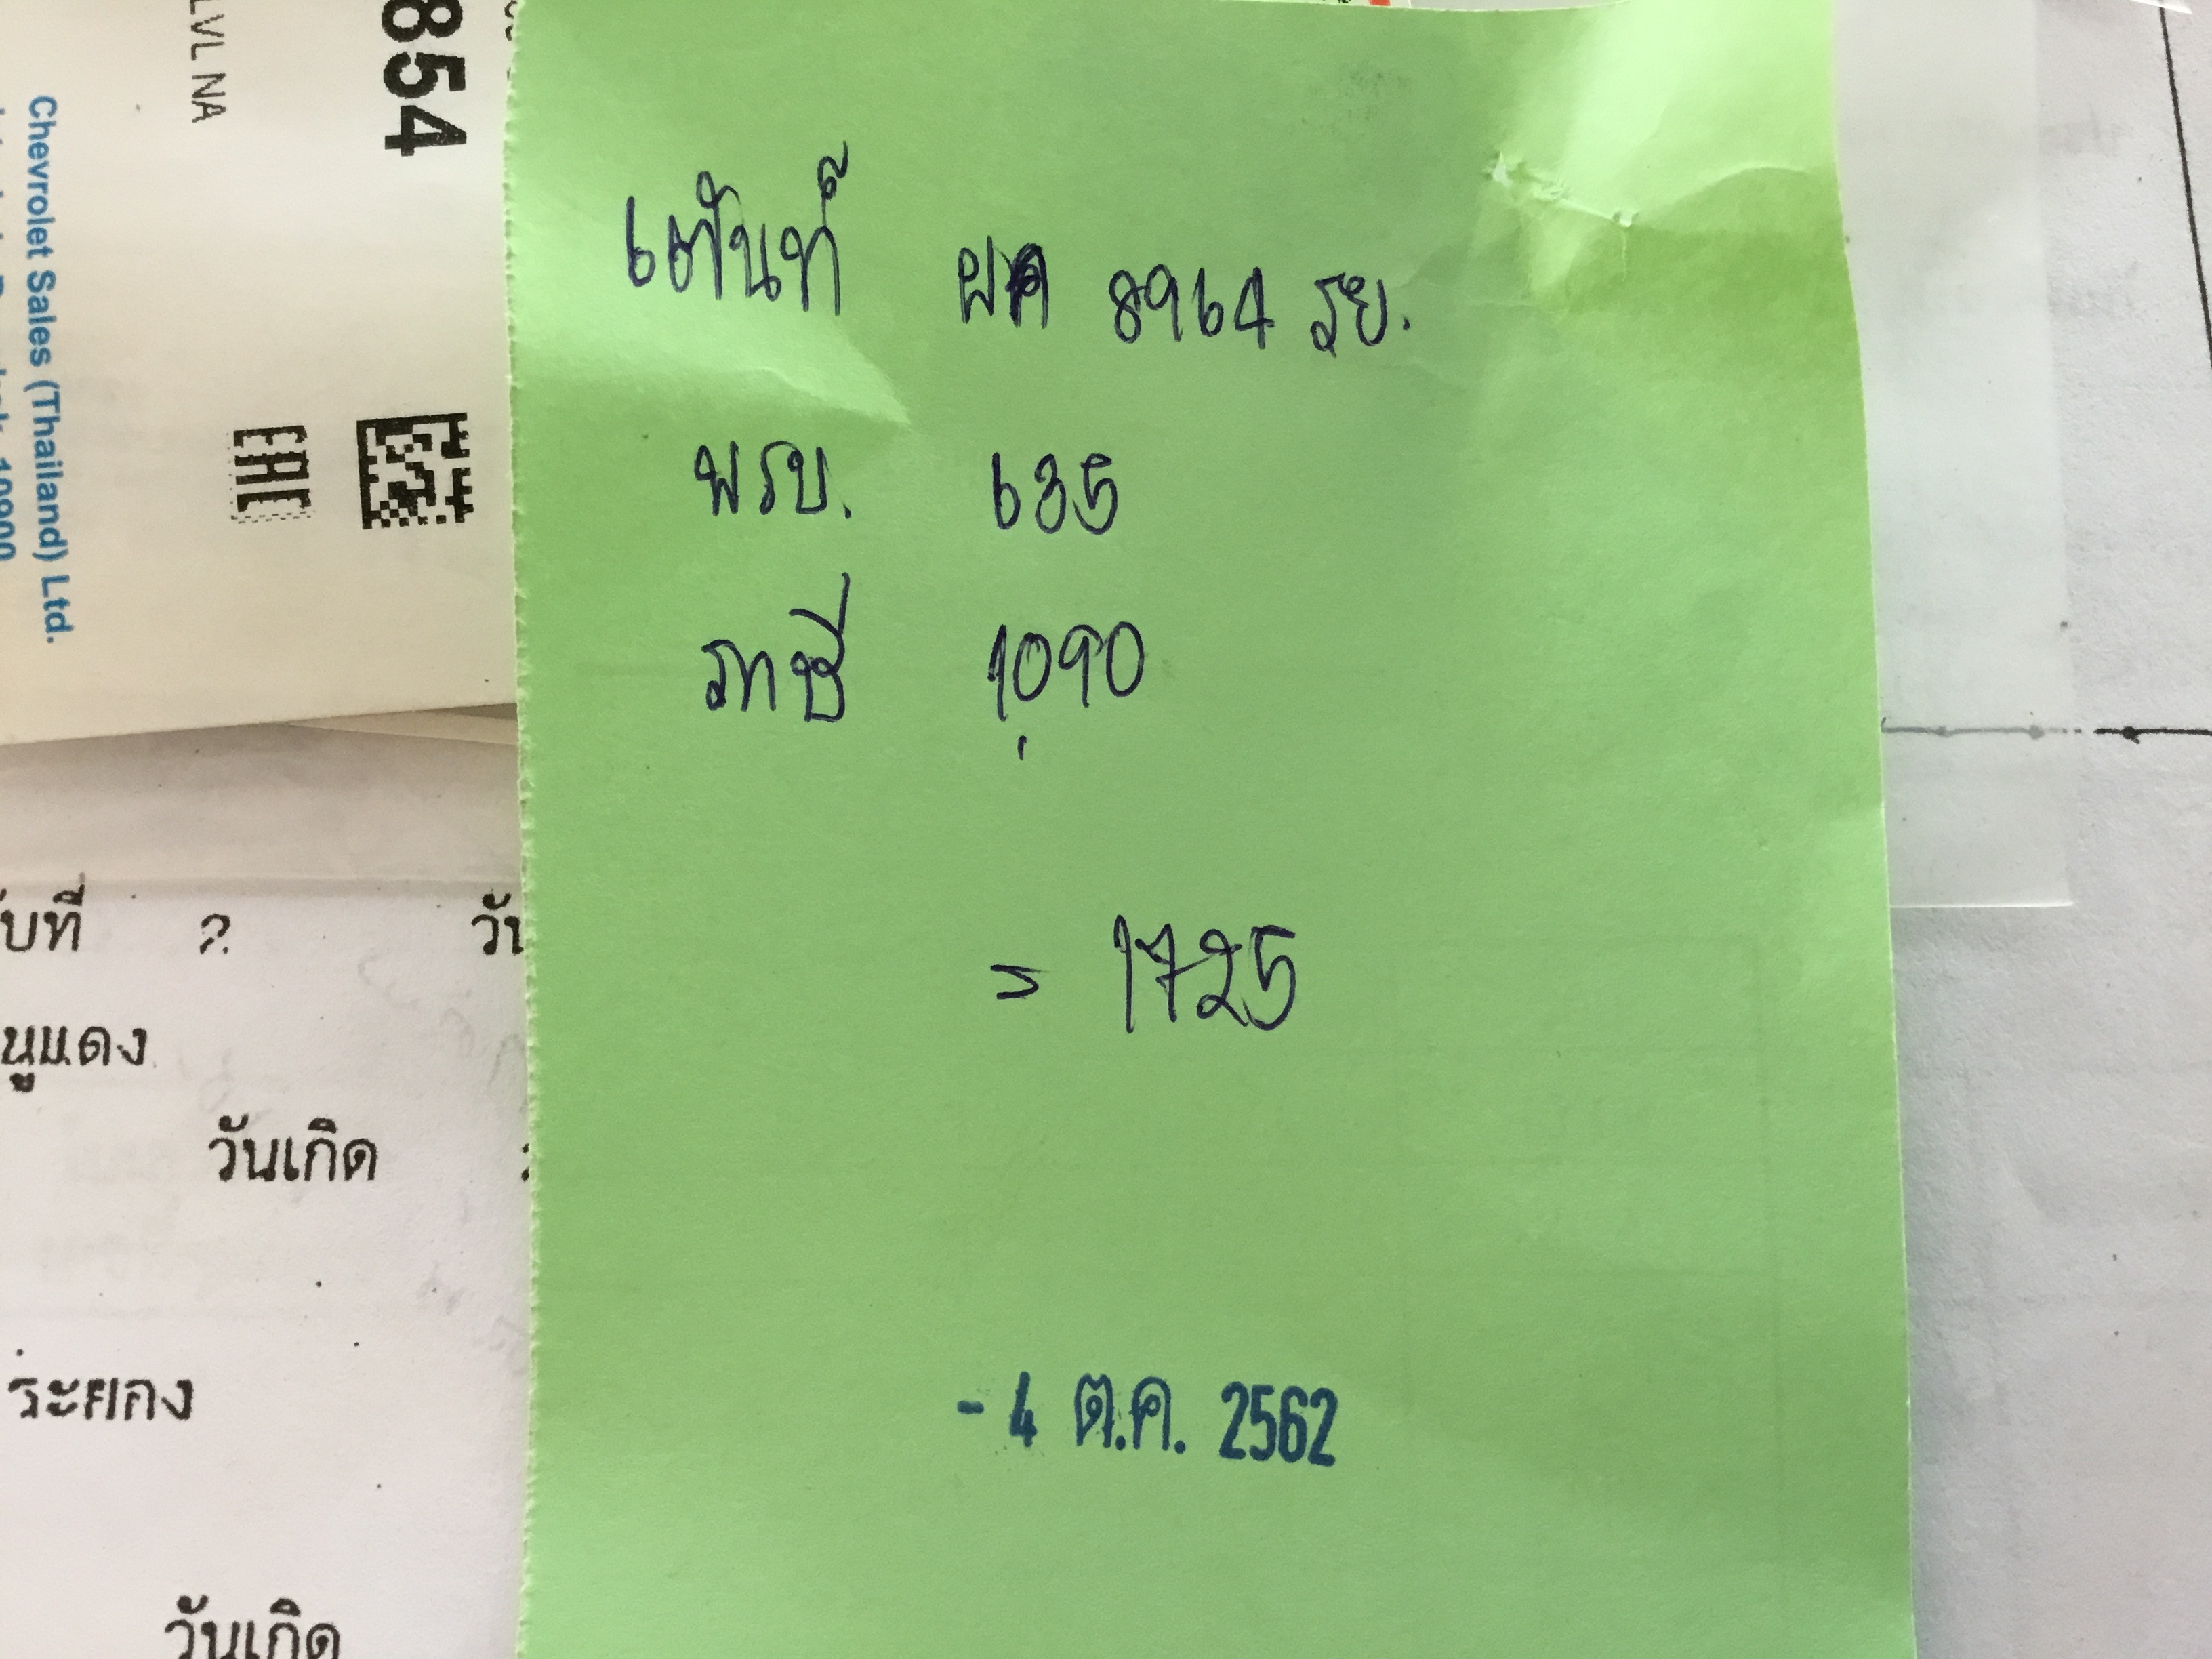 854
LVL NA
Chevrolet Sales (Thailand) Ltd.
EAC
เต้นท์ ผค 8964 รย.
พรบ. 635
ภาษี 1090
= 1725
- 4 ต.ค. 2562
บที่ 2 วัน
นูแดง
วันเกิด
ระยอง
วันเกิด